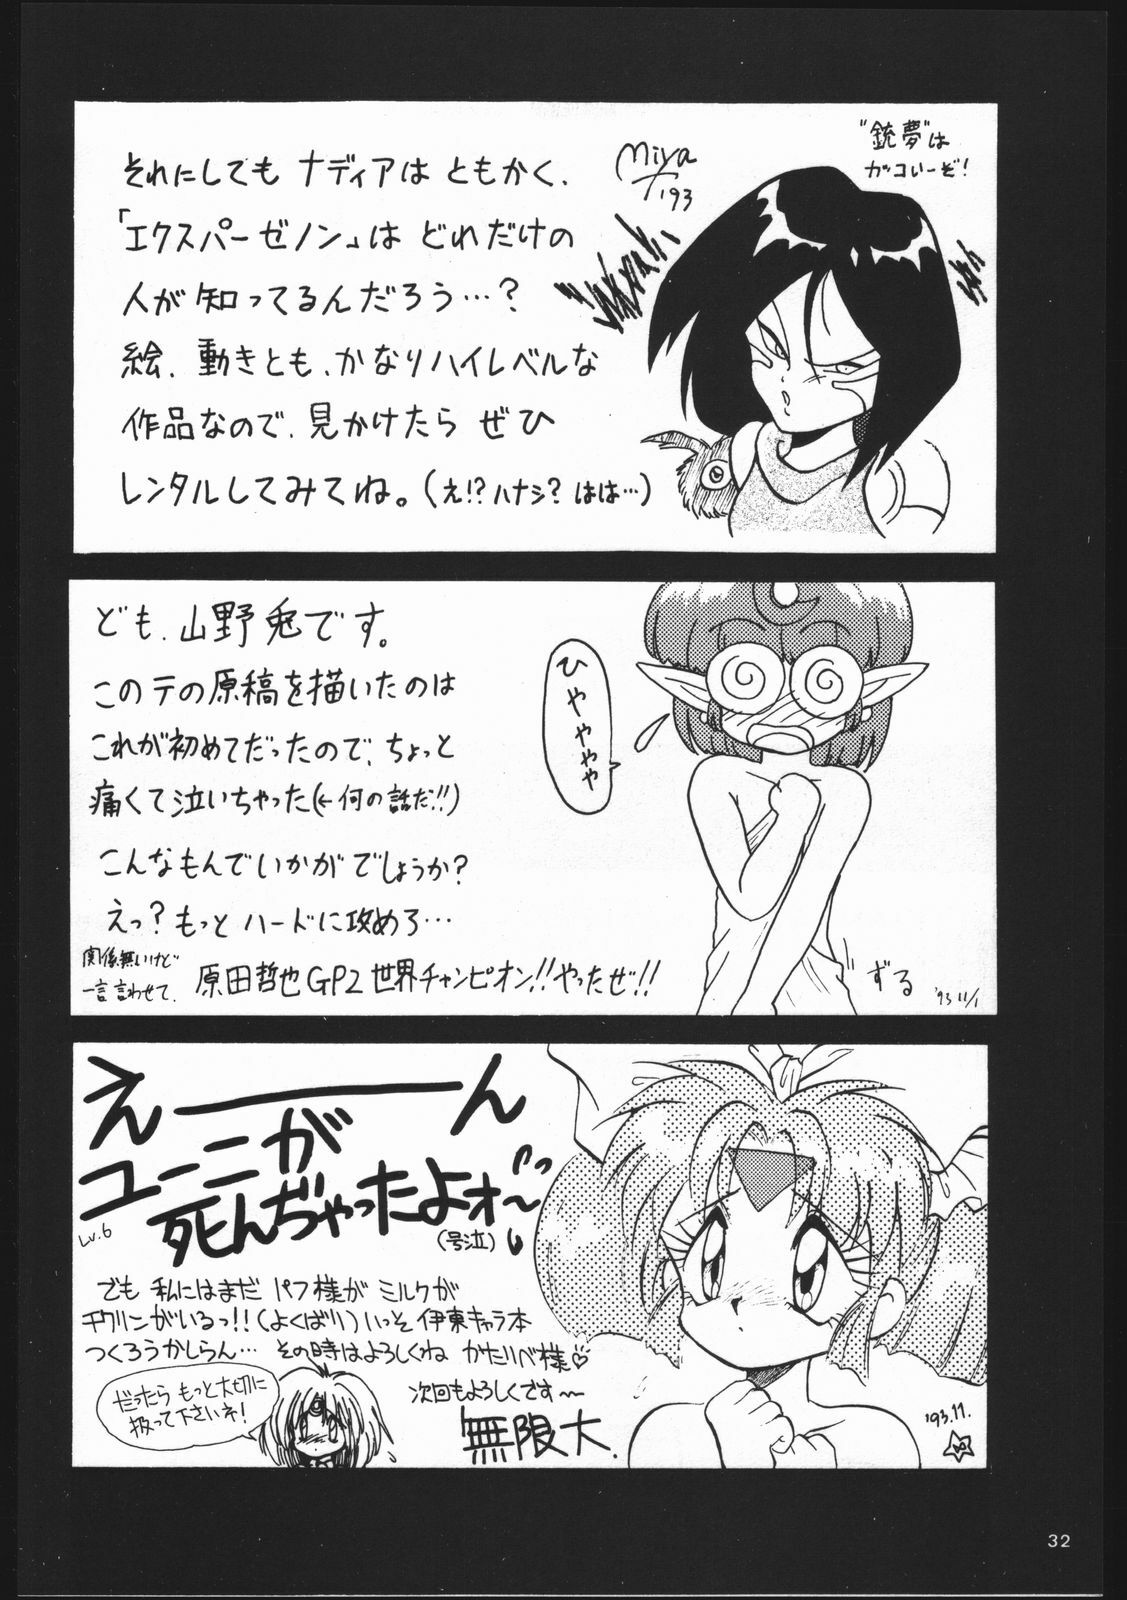 "銃夢"は
ガッコいーぞ!
Miya
'93
それにしても ナディアは ともかく、
「エクスパーゼノン」は どれだけの
人が 知ってるんだろう…?
絵、動きとも、かなりハイレベルな
作品なので、見かけたら ぜひ
レンタルしてみてね。(え!? ハナシ? はは…)
ども、山野兎です。
このテの原稿を描いたのは
これが初めてだったので、ちょっと
痛くて泣いちゃった(←何の話だ!!)
こんなもんでいかがでしょうか?
えっ? もっと ハードに攻めろ…
関係無いけど
一言 言わせて、
原田哲也GP2 世界チャンピオン!! やったぜ!!
ひやややや
ずる
'93 11/1
えーーん
ユーニが
死んぢゃったよォ〜
Lv.6
(号泣)
でも 私にはまだ パフ様が ミルクが
チクリンがいるっ!! (よくばり) いっそ 伊東キャラ本
つくろうかしらん… その時はよろしくね かたりべ様♡
だったら もっと大切に
扱って下さいネ!
次回もよろしくです〜
無限大.
'93.11.
32